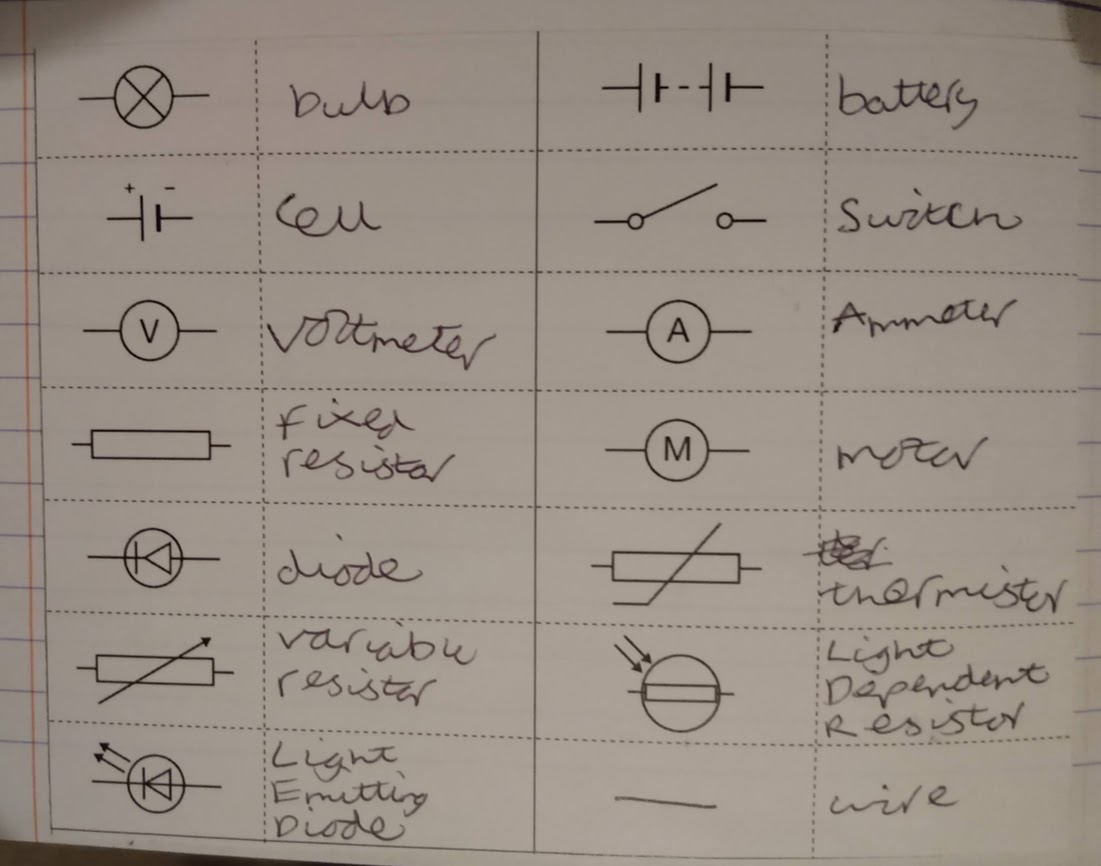 bulb
battery
+ -
Cell
Switch
V
Voltmeter
A
Ammeter
fixed
resistor
M
motor
diode
thermistor
variable
resistor
Light
Dependent
Resistor
Light
Emitting
Diode
wire